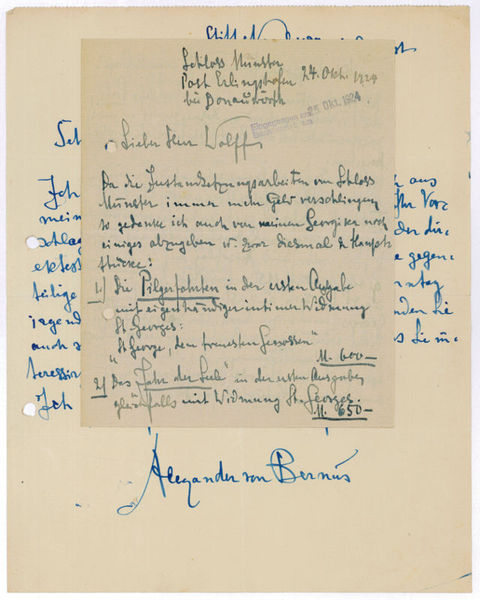 Schloss Münster
Post Erlingshofen 24. Okt. 1924
bei Donauwörth
25. OKT. 1924
Lieber Herr Wolff
Da die Instandsetzungsarbeiten von Schloss
Münster immer mehr Geld verschlingen
so gedenke ich auch von meinen Georgika noch
einiges abzugeben u. zwar diesmal 2 Haupt
stücke:
1) Die Pilgerfahrten in der ersten Ausgabe
mit eigenhändiger intimer Widmung
St. Georges:
"St. George, dem treuesten Genossen"
M. 600—
2) Das "Jahr der Seele" in der ersten Ausgabe
gleichfalls mit Widmung St. Georges.
M. 650—
Stift
Ich
aus
mein
Vor
schlag
der dir
ektest
gegen
teilige
irgend
Sie
auch
Sie in
teressir
Ich
Alexander von Bernus